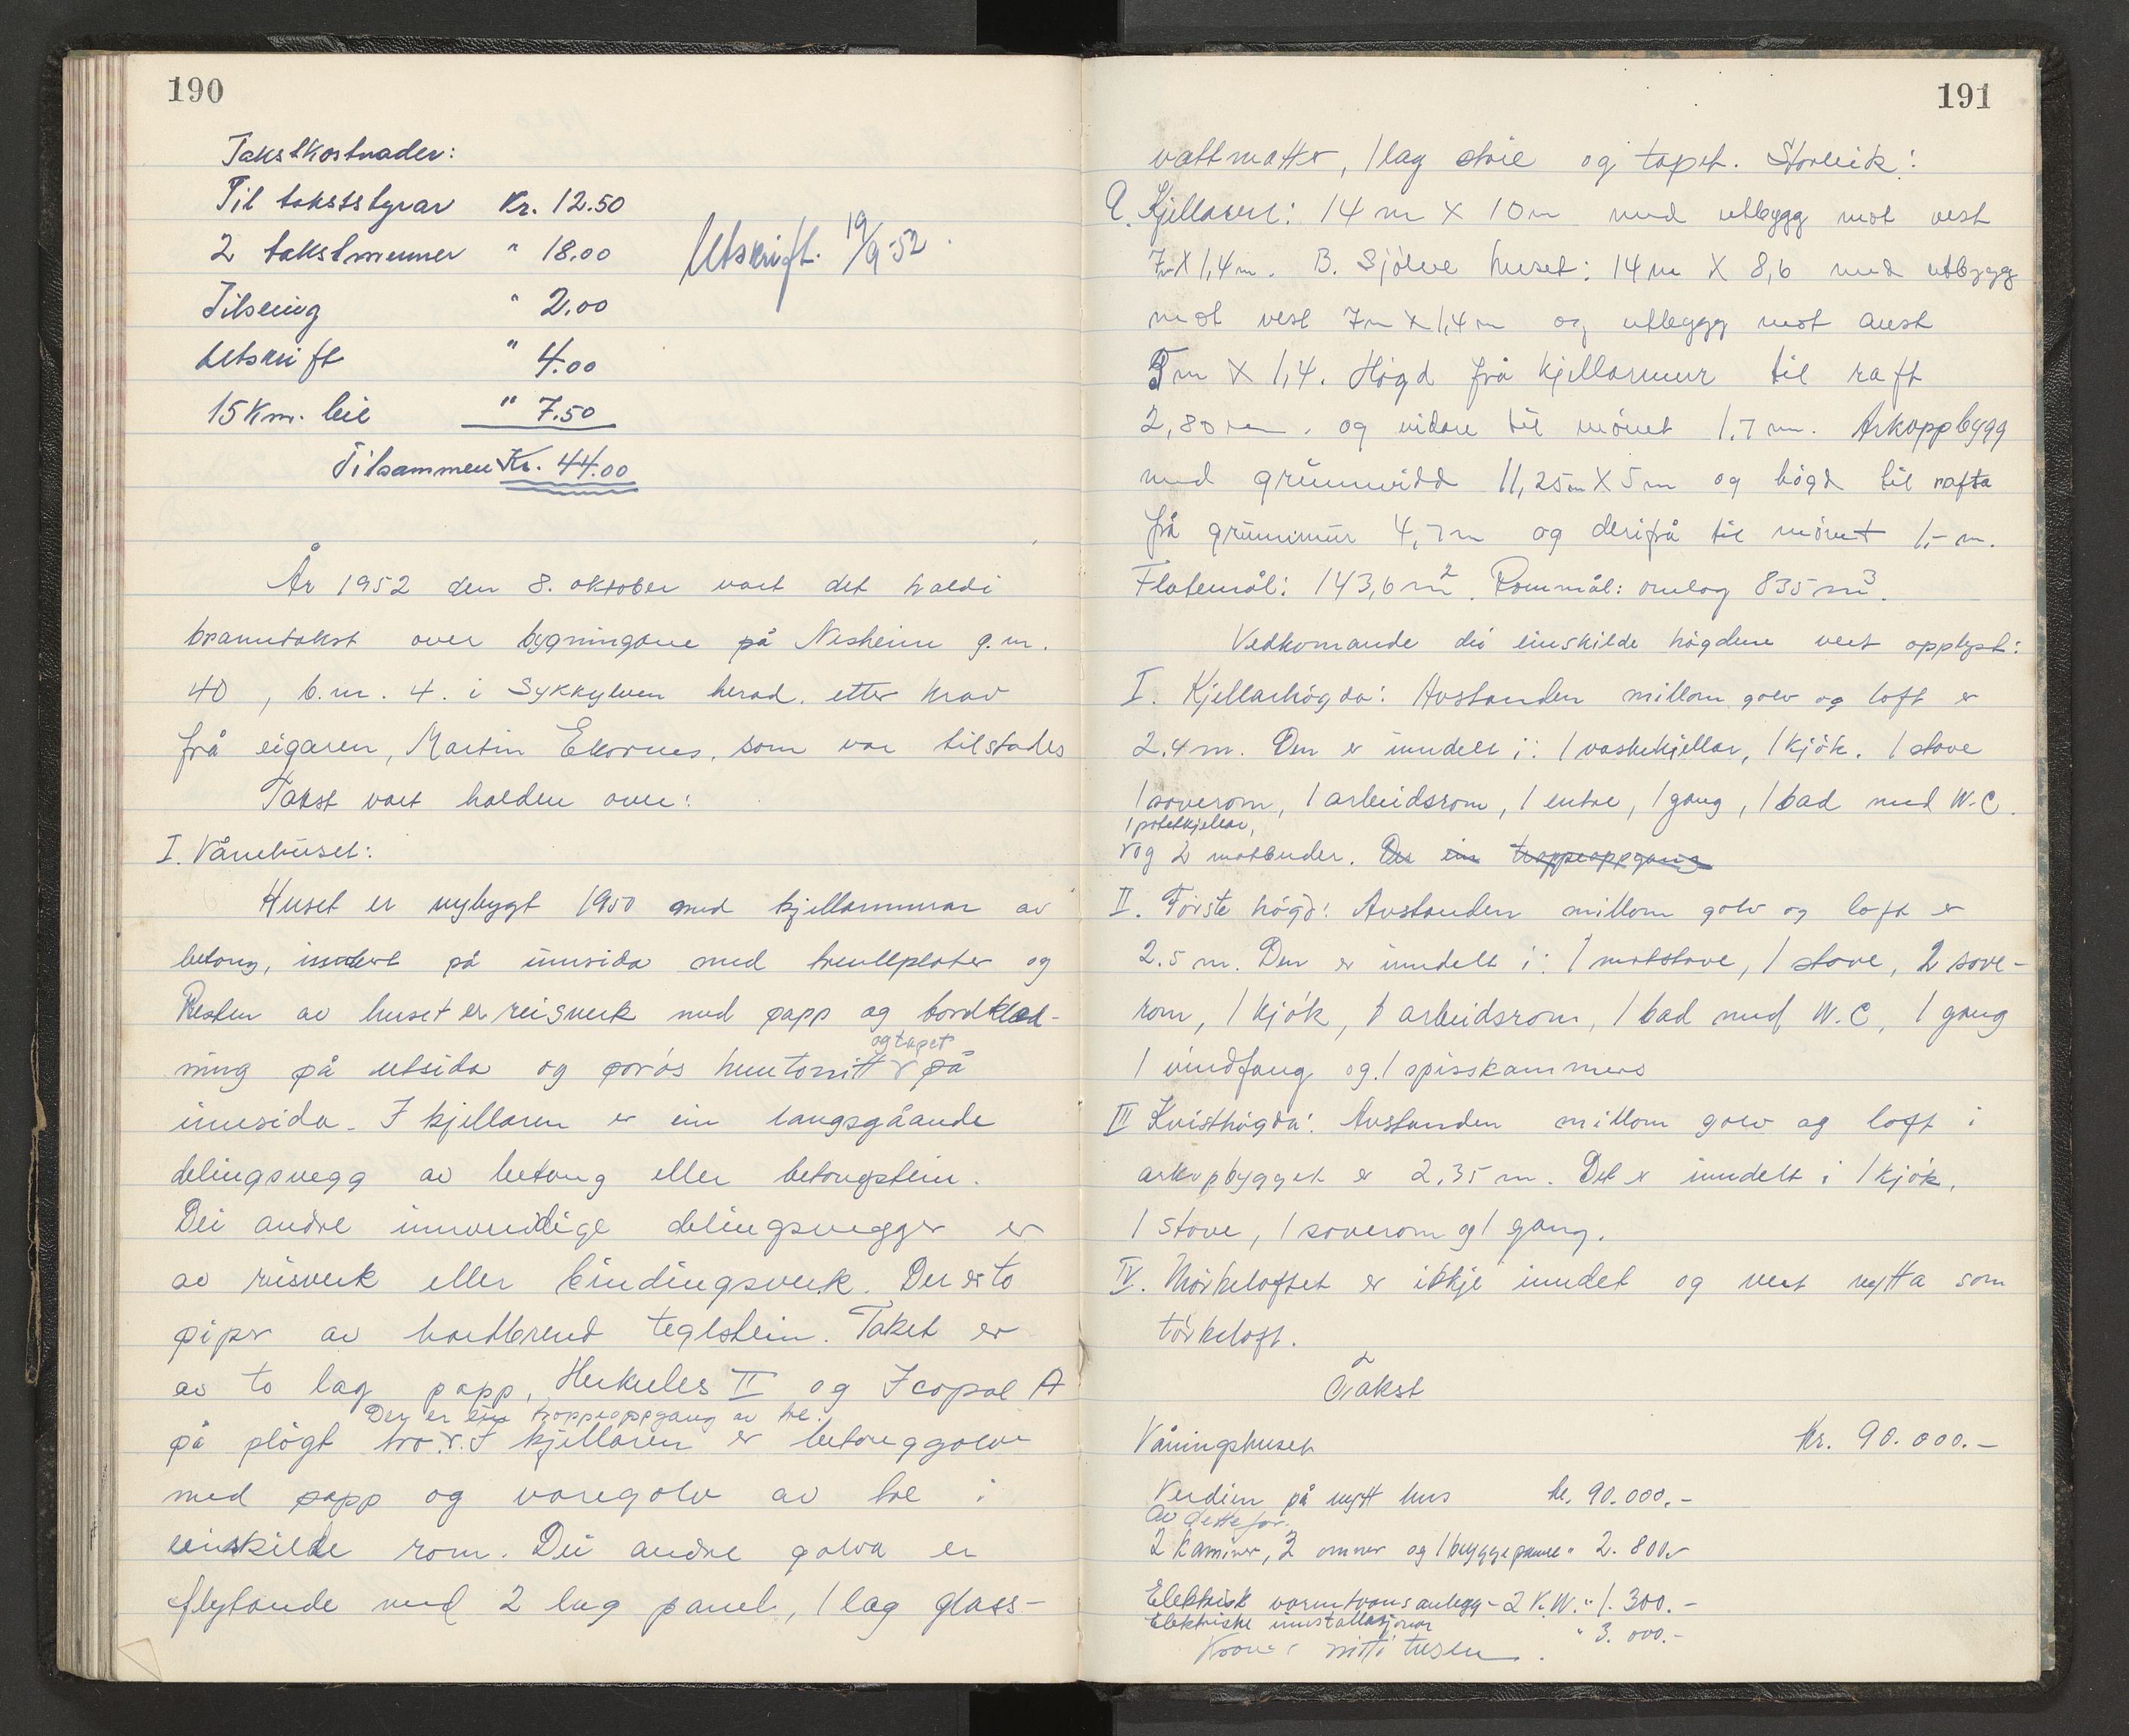 190
Takstkostnader:
Til takststyrar Kr. 12.50
2 takstmenner " 18.00
Utskrift 19/9-52
Tilseing " 2.00
Utskrift " 4.00
15 Km. bil " 7.50
Tilsammen Kr. 44.00
År 1952 den 8. oktober vart det haldi
branntakst over bygningane på Nesheim g.nr.
40, b.nr. 4. i Sykkylven herad. etter krav
frå eigaren, Martin Ekornes, som var tilstades
Takst vart halden over:
I. Vånehuset:
Huset er nybygt 1950 med kjellarmurar av
betong, på innsida med treullplater og
Resten av huset er reisverk med papp og bordklæd-
og tapet
ning på utsida og porøs huntonitt v på
innsida. I kjellaren er ein langsgåande
delingsvegg av betong eller betongstein.
Dei andre innvendige delingsvegger er
av reisverk eller bindingsverk. Der er to
piper av hardbrend teglstein. Taket er
av to lag papp, Herkules II og Icopal A
Der er ein troppeoppgang av tre.
på pløgt tro. v. I kjellaren er betonggolv
med papp og varegolv av tre i
einskilde rom. Dei andre golva er
flytande med 2 lag panel, 1 lag glass-
191
vattmatter, 1 lag strie og tapet. Storleik:
A. Kjellaren: 14 m X 10 m med utbygg mot vest
7m X 1,4 m. B. Sjølve huset: 14 m X 8,6 med utbygg
mot vest 7m X 1,4 m og utbygg mot aust
5 m X 1,4. Høgd frå kjellarmur til raft
2,80 m. og vidare til mønet 1.7 m. Arkoppbygg
med grunnvidd 11,25m X 5 m og høgd til rafta
frå grunnmur 4,7 m og derifrå til mønet 1,- m.
Flatemål: 143,6 m². Rommål: omlag 835 m³.
Vedkomande dei einskilde høgdene vert opplyst:
I. Kjellarhøgda: Avstanden millom golv og loft er
2.4 m. Den er inndelt i: 1 vaskekjellar, 1 kjøk. 1 stove
1 soverom, 1 arbeidsrom, 1 entre, 1 gang, 1 bad med W.C.
1 potetkjellar,
v og 2 matbuder. Der ein troppeoppgang
II. Første høgd: Avstanden millom golv og loft er
2.5 m. Den er inndelt i: 1 matstove, 1 stove, 2 sove-
rom, 1 kjøk, 1 arbeidsrom, 1 bad med W.C, 1 gang
1 vindfang og 1 spisskammers
III Kvisthøgda: Avstanden millom golv og loft i
arkopbygget er 2,35 m. Det er inndelt i 1 kjøk,
1 stove, 1 soverom og 1 gang.
IV. Mørkeloftet er ikkje inndet og vert nytta som
tørkeloft.
Takst
Våningshuset Kr. 90.000.-
Verdien på nytt hus kr. 90.000.-
Av dette for.
2 kaminer, 3 omner og 1 bryggepanne " 2.800.-
Elektrisk varmtvansanlegg - 2 K.W. " 1.300.-
Elektriske innstallasjonar " 3.000.-
Kroner nitti tusen.